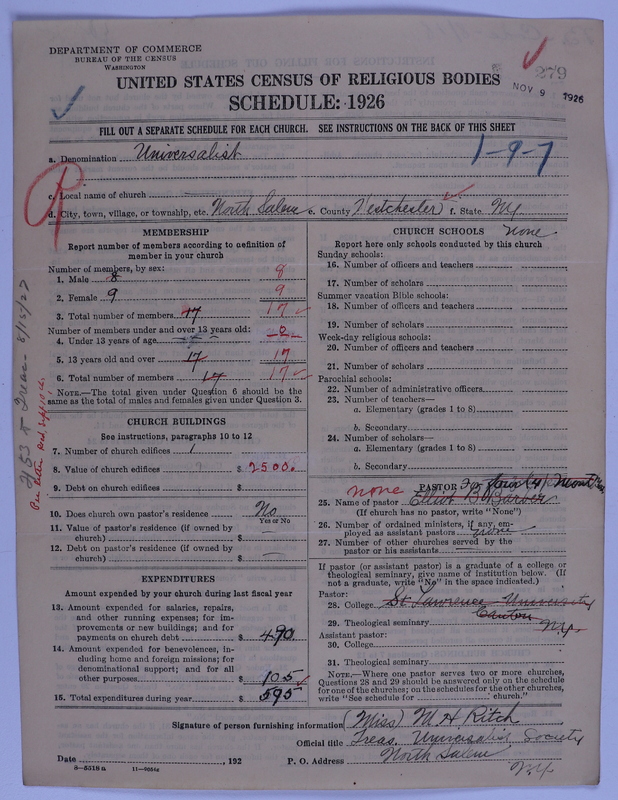 DEPARTMENT OF COMMERCE
BUREAU OF THE CENSUS
WASHINGTON
279
NOV 9 1926
UNITED STATES CENSUS OF RELIGIOUS BODIES
SCHEDULE: 1926
FILL OUT A SEPARATE SCHEDULE FOR EACH CHURCH. SEE INSTRUCTIONS ON THE BACK OF THIS SHEET
a. Denomination Universalist
1-9-7
c. Local name of church
d. City, town, village, or township, etc. North Salem e. County Westchester f. State N.Y.
MEMBERSHIP
Report number of members according to definition of
member in your church
Number of members, by sex:
1. Male 8 8
2. Female 9 9
3. Total number of members 17 17
Number of members under and over 13 years old:
4. Under 13 years of age 0
5. 13 years old and over 17 17
6. Total number of members 17 17
NOTE.—The total given under Question 6 should be
same as the total of males and females given under Question 3.
CHURCH BUILDINGS
See instructions, paragraphs 10 to 12
7. Number of church edifices 1
8. Value of church edifices $ 2500.
9. Debt on church edifices $
10. Does church own pastor's residence No
Yes or No
11. Value of pastor's residence (if owned by
church) $
12. Debt on pastor's residence (if owned by
church) $
EXPENDITURES
Amount expended by your church during last fiscal year
13. Amount expended for salaries, repairs,
and other running expenses; for im-
provements or new buildings; and for
payments on church debt $ 490
14. Amount expended for benevolences, in-
cluding home and foreign missions; for
denominational support; and for all
other purposes $ 105
15. Total expenditures during year $ 595
CHURCH SCHOOLS none
Report here only schools conducted by this church
Sunday schools:
16. Number of officers and teachers
17. Number of scholars
Summer vacation Bible schools:
18. Number of officers and teachers
19. Number of scholars
Week-day religious schools:
20. Number of officers and teachers
21. Number of scholars
Parochial schools:
22. Number of administrative officers
23. Number of teachers—
a. Elementary (grades 1 to 8)
b. Secondary
24. Number of scholars—
a. Elementary (grades 1 to 8)
b. Secondary
PASTOR For four (4) Months
none
25. Name of pastor Elliot B. Barber
(If church has no pastor, write "None")
26. Number of ordained ministers, if any, em-
ployed as assistant pastors none
27. Number of other churches served by the
pastor or his assistants
If pastor (or assistant pastor) is a graduate of a college or
theological seminary, give name of institution below. (If
not a graduate, write "No" in the space indicated.)
Pastor:
28. College St Lawrence University
29. Theological seminary Canton N.Y.
Assistant pastor:
30. College
31. Theological seminary
NOTE.—Where one pastor serves two or more churches,
Questions 28 and 29 should be answered only on the schedule
for one of the churches; on the schedules for the other churches,
write "See schedule for church."
Signature of person furnishing information (Miss) M H Ritch
Official title Treas. Universalist Society
Date , 192 P. O. Address North Salem
N.Y.
8-5518a 11-9054